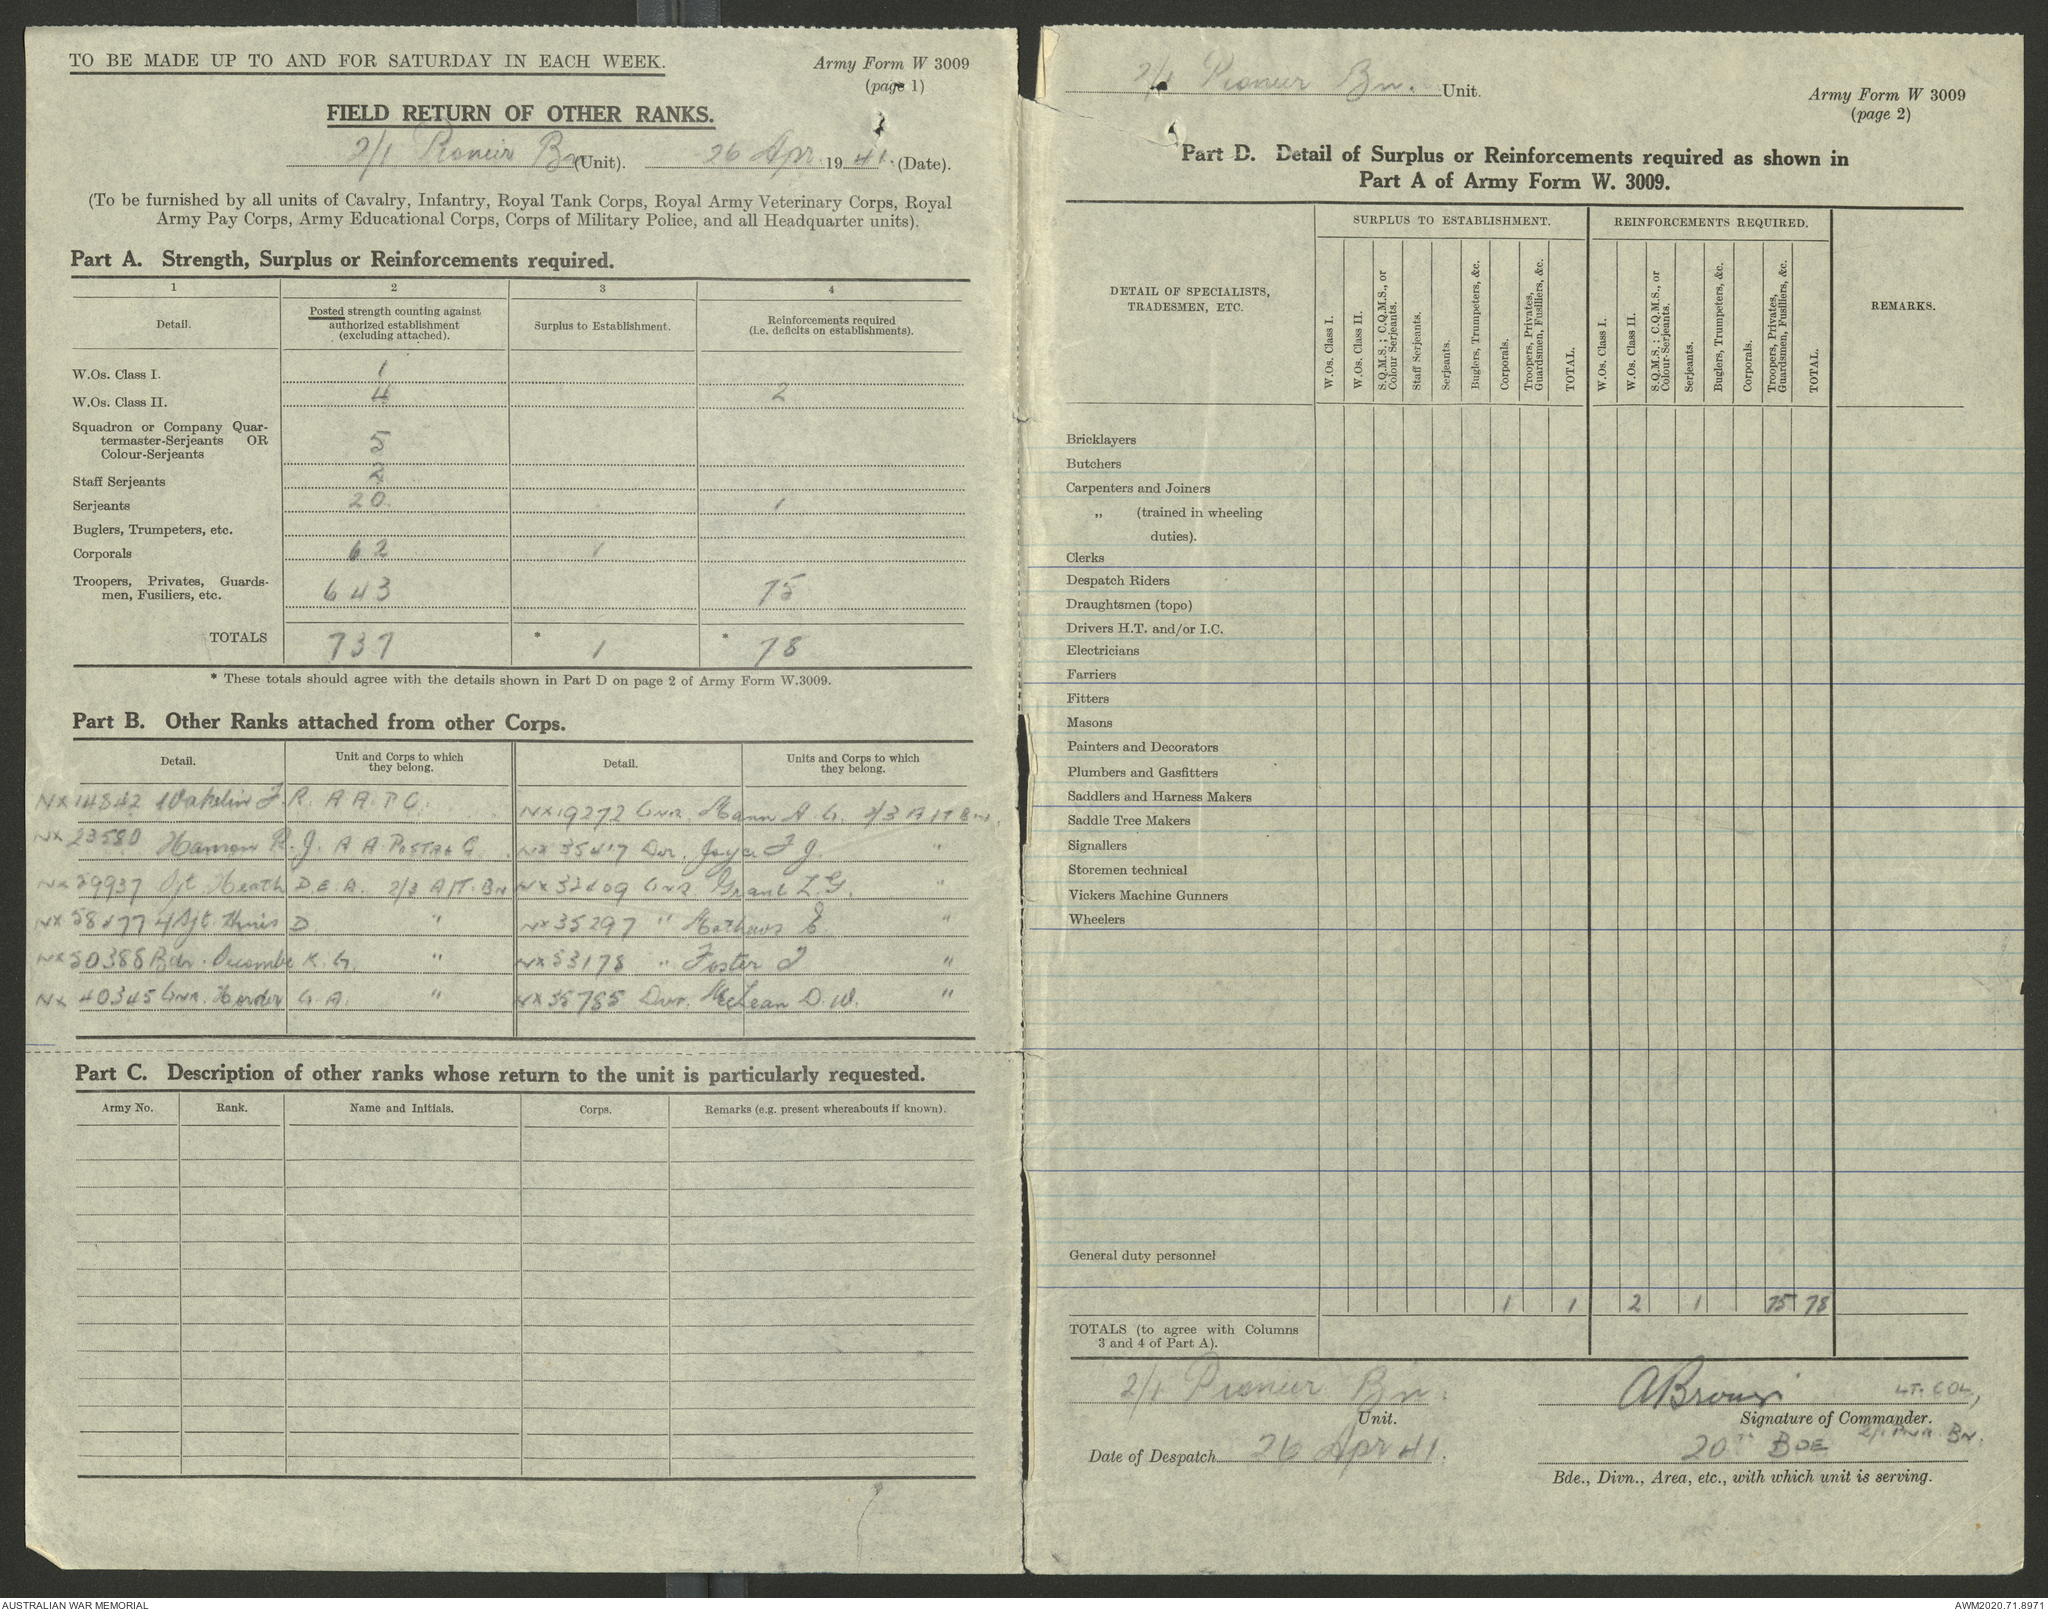 TO BE MADE UP TO AND FOR SATURDAY IN EACH WEEK.
Army Form W 3009
(page 1)
FIELD RETURN OF OTHER RANKS.
2/1 Pioneer Bn (Unit). 26 Apr 1941. (Date).
(To be furnished by all units of Cavalry, Infantry, Royal Tank Corps, Royal Army Veterinary Corps, Royal
Army Pay Corps, Army Educational Corps, Corps of Military Police, and all Headquarter units).
Part A. Strength, Surplus or Reinforcements required.
1 2 3 4
Detail.
Posted strength counting against
authorized establishment
(excluding attached).
Surplus to Establishment.
Reinforcements required
(i.e. deficits on establishments).
W.Os. Class I. 1
W.Os. Class II. 4 2
Squadron or Company Quar-
termaster-Serjeants OR
Colour-Serjeants 5
Staff Serjeants 2
Serjeants 20 1
Buglers, Trumpeters, etc.
Corporals 62 1
Troopers, Privates, Guards-
men, Fusiliers, etc. 643 75
TOTALS 737 * 1 * 78
* These totals should agree with the details shown in Part D on page 2 of Army Form W.3009.
Part B. Other Ranks attached from other Corps.
Detail.
Unit and Corps to which
they belong.
Detail.
Units and Corps to which
they belong.
NX14842 Wakelin F. R. A A P C.
NX19272 Gnr. Mann A. G. 2/3 A/T Bn.
NX23580 R. J. A A Postal C
NX35417 Dvr. Joyce F J. "
NX59937 Sjt. Heath D.E.A. 2/3 A/T. Bn
Gnr. Grant L. G. "
Sjt. D "
NX35297 " Mathews E. "
NX50388 Bdr. K. G. "
NX53178 " Foster J "
NX40345 Gnr. Harder G. A. "
NX35785 Dvr. McLean D. W. "
Part C. Description of other ranks whose return to the unit is particularly requested.
Army No. Rank. Name and Initials. Corps. Remarks (e.g. present whereabouts if known).
2/1 Pioneer Bn. Unit.
Army Form W 3009
(page 2)
Part D. Detail of Surplus or Reinforcements required as shown in
Part A of Army Form W. 3009.
DETAIL OF SPECIALISTS,
TRADESMEN, ETC.
SURPLUS TO ESTABLISHMENT.
W.Os. Class I.
W.Os. Class II.
S.Q.M.S.; C.Q.M.S., or
Colour Serjeants.
Staff Serjeants.
Serjeants.
Buglers, Trumpeters, &c.
Corporals.
Troopers, Privates,
Guardsmen, Fusiliers, &c.
TOTAL.
REINFORCEMENTS REQUIRED.
W.Os. Class I.
W.Os. Class II.
S.Q.M.S.; C.Q.M.S., or
Colour-Serjeants.
Serjeants.
Buglers, Trumpeters, &c.
Corporals.
Troopers, Privates,
Guardsmen, Fusiliers, &c.
TOTAL.
REMARKS.
Bricklayers
Butchers
Carpenters and Joiners
„ (trained in wheeling
duties).
Clerks
Despatch Riders
Draughtsmen (topo)
Drivers H.T. and/or I.C.
Electricians
Farriers
Fitters
Masons
Painters and Decorators
Plumbers and Gasfitters
Saddlers and Harness Makers
Saddle Tree Makers
Signallers
Storemen technical
Vickers Machine Gunners
Wheelers
General duty personnel
1 1 2 1 75 78
TOTALS (to agree with Columns
3 and 4 of Part A).
2/1 Pioneer Bn.
Unit.
Date of Despatch 26 Apr 41.
ABrown LT. COL,
Signature of Commander.
2/1 PNR BN.
20TH BDE
Bde., Divn., Area, etc., with which unit is serving.
AUSTRALIAN WAR MEMORIAL
AWM2020.71.8971